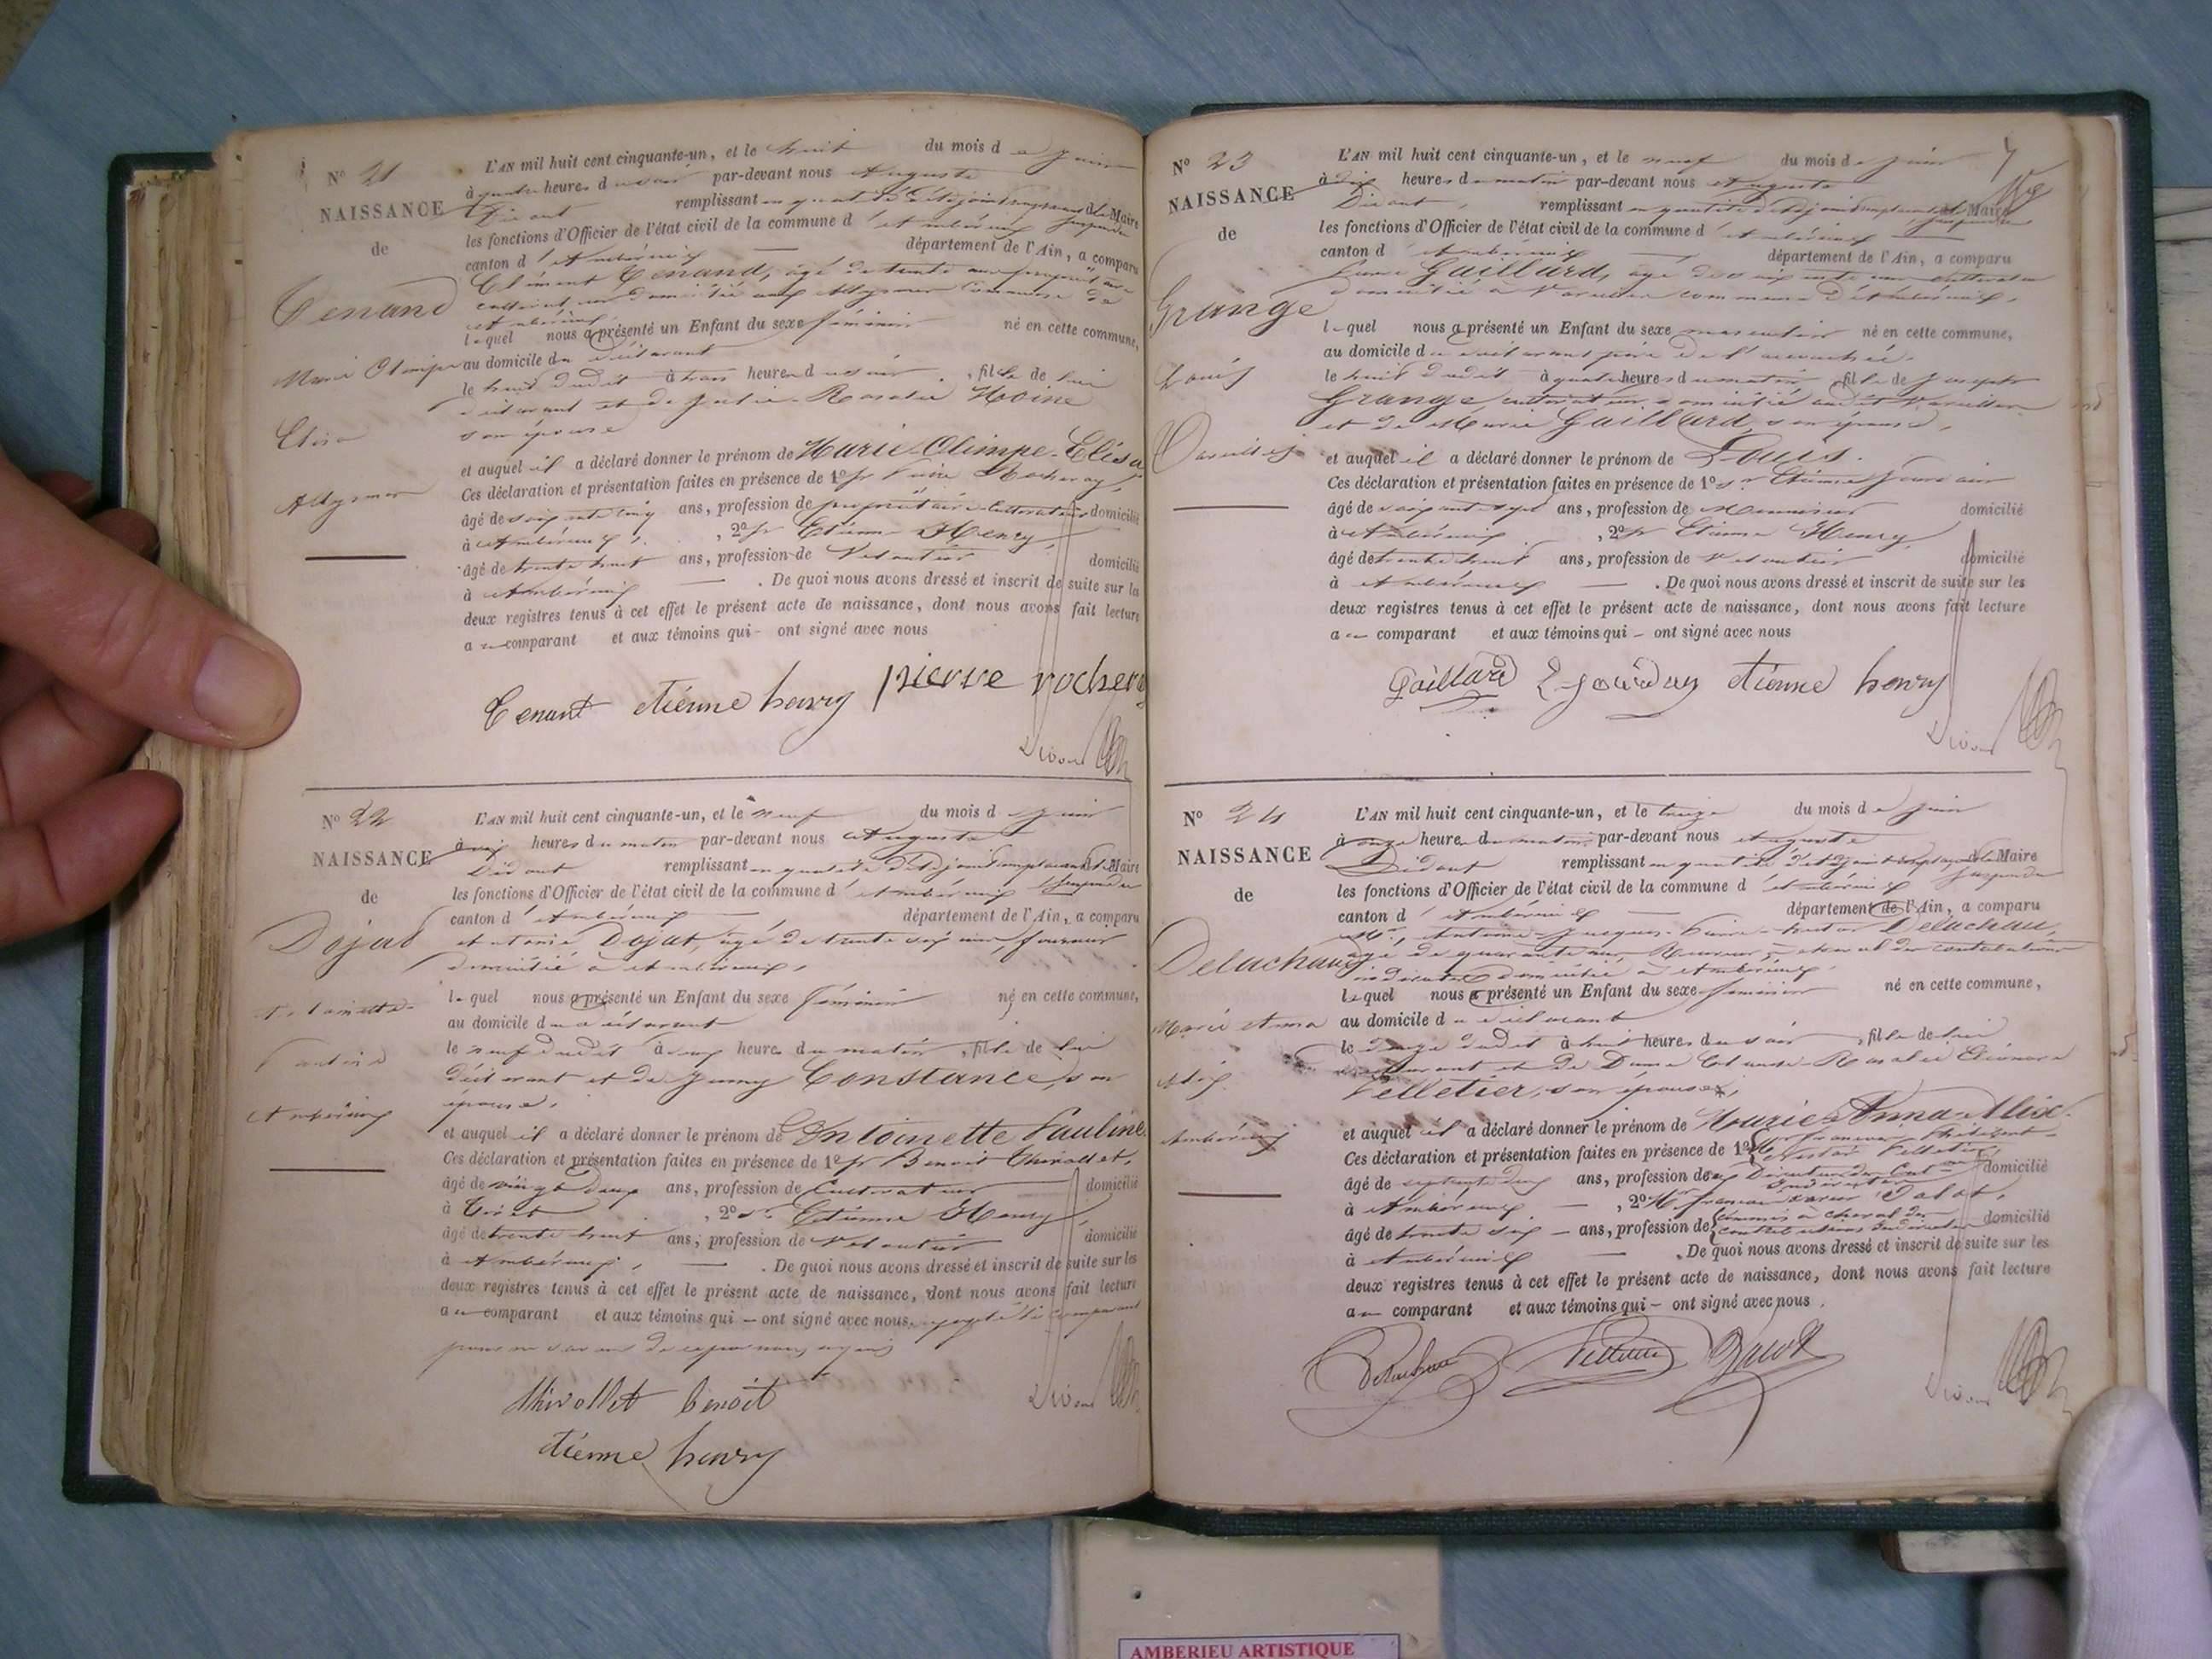 N° 21
NAISSANCE
de
Tenand
Marie Olimpe
Elisa
Allymes
L'AN mil huit cent cinquante-un, et le huit du mois de juin
à quatre heures du soir par-devant nous Auguste
Didout remplissant en qualité d'adjoint remplaçant le Maire suspendu
les fonctions d'Officier de l'état civil de la commune d'Ambérieux
canton d'Ambérieux — département de l'Ain, a comparu
Clément Tenand, âgé de trente ans propriétaire
cultivateur domicilié aux Allymes commune de
Ambérieux,
lequel nous a présenté un Enfant du sexe féminin né en cette commune,
au domicile du déclarant
le huit dudit à trois heures du soir, fille de lui
déclarant et de Julie Rosalie Moine
son épouse
et auquel il a déclaré donner le prénom de Marie-Olimpe-Elisa
Ces déclaration et présentation faites en présence de 1° sr Pierre Rocheray,
âgé de soixante cinq ans, profession de propriétaire-cultivateur domicilié
à Ambérieux, 2° sr Etienne Henry,
âgé de trente huit ans, profession de domicilié
à Ambérieux — . De quoi nous avons dressé et inscrit de suite sur les
deux registres tenus à cet effet le présent acte de naissance, dont nous avons fait lecture
au comparant et aux témoins qui ont signé avec nous
Tenant etiénne henry pierre rochera
N° 22
NAISSANCE
de
Dojat
Antoinette
Pauline
Ambérieux
L'AN mil huit cent cinquante-un, et le neuf du mois de juin
à heures du matin par-devant nous Auguste
Didout remplissant en qualité d'adjoint remplaçant le Maire suspendu
les fonctions d'Officier de l'état civil de la commune d'Ambérieux
canton d'Ambérieux — département de l'Ain, a comparu
Antoine Dojat, âgé de trente six ans,
domicilié à Ambérieux,
lequel nous a présenté un Enfant du sexe féminin né en cette commune,
au domicile du déclarant
le neuf dudit à heures du matin, fille de lui
déclarant et de Jenny Constance, son
épouse,
et auquel il a déclaré donner le prénom de Antoinette Pauline
Ces déclaration et présentation faites en présence de 1° sr Benoit Thivollet,
âgé de vingt deux ans, profession de Cultivateur domicilié
à Tiret, 2° sr Etienne Henry,
âgé de trente huit ans, profession de domicilié
à Ambérieux, — . De quoi nous avons dressé et inscrit de suite sur les
deux registres tenus à cet effet le présent acte de naissance, dont nous avons fait lecture
au comparant et aux témoins qui — ont signé avec nous, excepté le comparant
pour ne savoir de ce
thivollet benoit
etiénne henry
N° 23
NAISSANCE
de
Grange
Louis
Vareilles
L'AN mil huit cent cinquante-un, et le neuf du mois de juin
à dix heures du matin par-devant nous Auguste
Didout, remplissant en qualité d'adjoint remplaçant le Maire suspendu
les fonctions d'Officier de l'état civil de la commune d'Ambérieux —
canton d'Ambérieux — département de l'Ain, a comparu
Gaillard, âgé de soixante ans cultivateur
domicilié à Vareilles commune d'Ambérieux,
lequel nous a présenté un Enfant du sexe masculin né en cette commune,
au domicile du déclarant père de l'accouchée.
le huit dudit à quatre heures du matin, fils de Joseph
Grange cultivateur domicilié audit Vareilles
et de Marie Gaillard, son épouse,
et auquel il a déclaré donner le prénom de Louis.
Ces déclaration et présentation faites en présence de 1° sr Etienne Jourdain
âgé de soixante sept ans, profession de Menuisier domicilié
à Ambérieux, 2° sr Etienne Henry,
âgé de trente huit ans, profession de domicilié
à Ambérieux — . De quoi nous avons dressé et inscrit de suite sur les
deux registres tenus à cet effet le présent acte de naissance, dont nous avons fait lecture
au comparant et aux témoins qui — ont signé avec nous
Gaillard E Jourdan etiénne henry
N° 24
NAISSANCE
de
Delachaux
Marie Anna
Alix
Ambérieux
L'AN mil huit cent cinquante-un, et le treize du mois de juin
à onze heures du matin par-devant nous Auguste
Didout remplissant en qualité d'adjoint remplaçant le Maire suspendu
les fonctions d'Officier de l'état civil de la commune d'Ambérieux
canton d'Ambérieux — département de l'Ain, a comparu
Mr, Antoine-Jacques-Pierre Delachaux,
âgé de quarante ans, Receveur à cheval des contributions
indirectes domicilié à Ambérieux,
lequel nous a présenté un Enfant du sexe féminin né en cette commune,
au domicile du déclarant
le douze dudit à huit heures du soir, fille de lui
déclarant et de Dame Claude-Rosalie Eléonore
Pelletier, son épouse,
et auquel il a déclaré donner le prénom de Marie-Anna-Alix.
Ces déclaration et présentation faites en présence de 1° Mr Pelletier,
âgé de ans, profession de Directeur des Cont. Indirectes domicilié
à Ambérieux — , 2° Mr françois Jalot,
âgé de trente six — ans, profession de Commis à cheval des contributions Indirectes domicilié
à Ambérieux — . De quoi nous avons dressé et inscrit de suite sur les
deux registres tenus à cet effet le présent acte de naissance, dont nous avons fait lecture
au comparant et aux témoins qui — ont signé avec nous.
AMBERIEU ARTISTIQUE